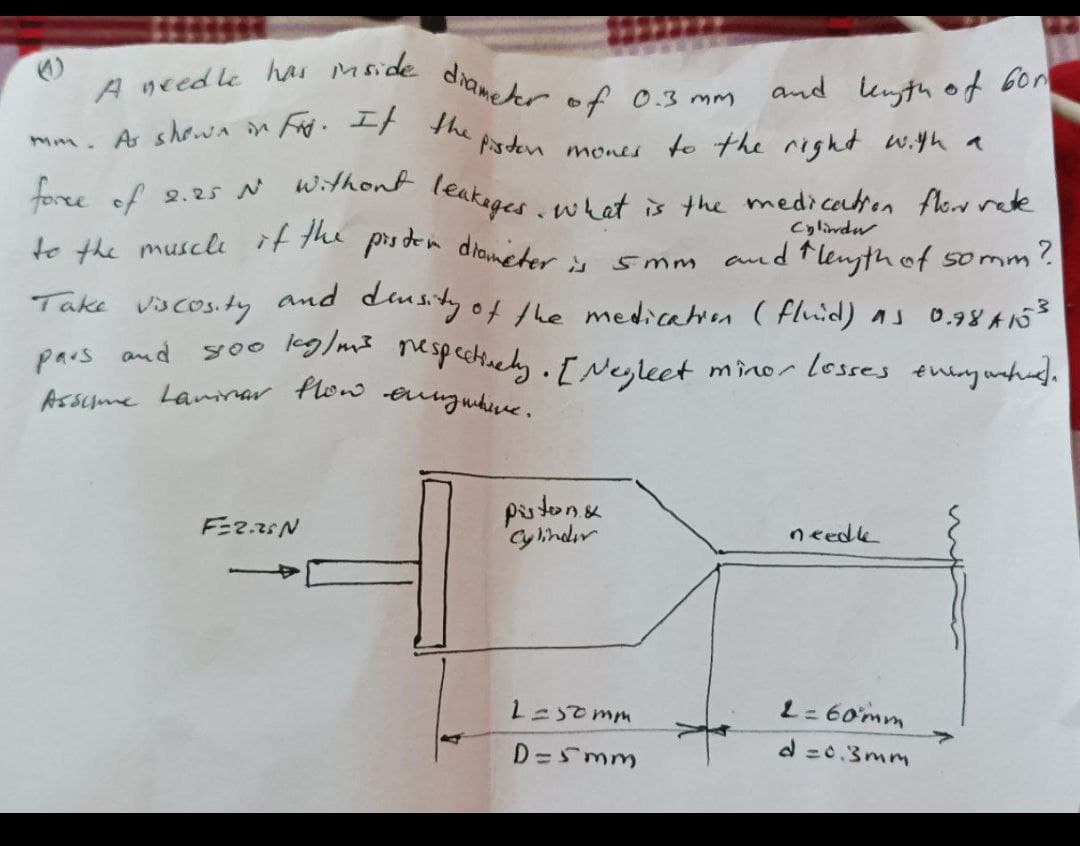 A)
A needle has inside diameter of 0.3 mm and length of 60
mm. As shown in Fig. If the piston moves to the right with a
force of 2.25 N without leakages. what is the medication flow rate
cylinder
to the muscle if the piston diameter is 5mm and ↑ length of 50mm?
Take viscosity and density of the medication (fluid) as 0.98 * 10^-3
pa.s and 800 kg/m3 respectively. [Neglect minor losses everywhere].
Assume Laminar flow everywhere.
F=2.25N
piston &
cylinder
needle
L=50mm
D=5mm
l=60mm
d=0.3mm